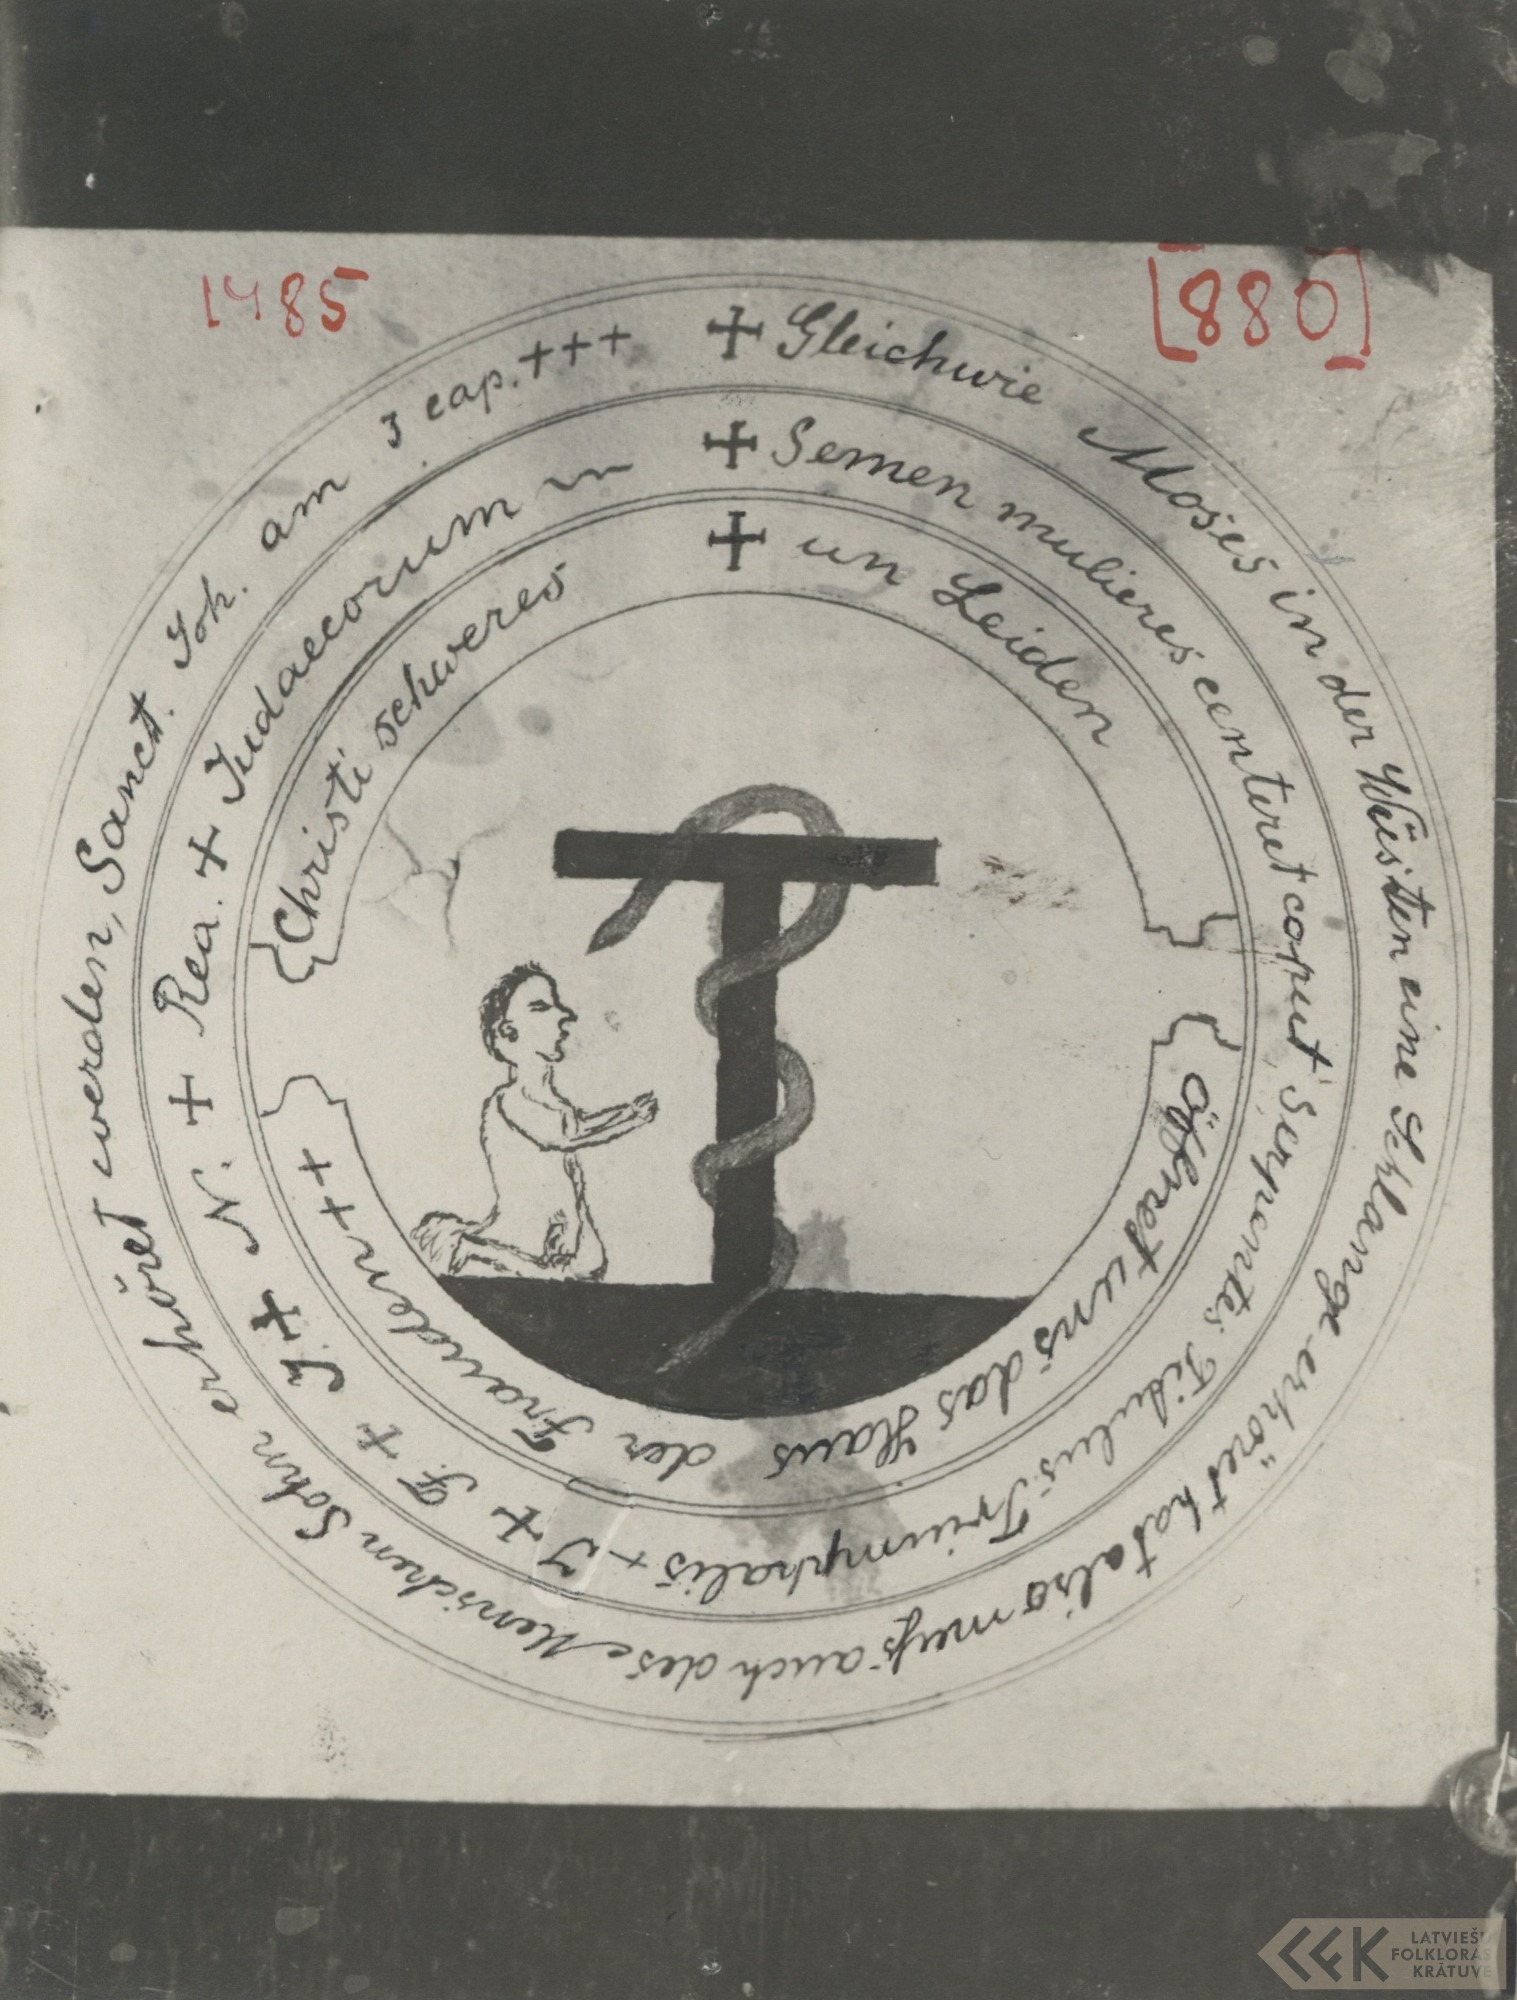 1485
[880]
+ Gleichwie Moses in der Wüsten eine Schlange erhöret hat also muß auch des Menschen Sohn erhöret werden, Sanct. Joh. am 3 cap. +++
+ Semen mulieres centeret coput Serpentes Titulus Triumphalis + J + F. + J. + N. + Rea. + Judaecorum
+ un Leiden
Christi schweres
Öffnet uns das Haus der Frauden ++
LATVIEŠU
FOLKLORAS
KRĀTUVE